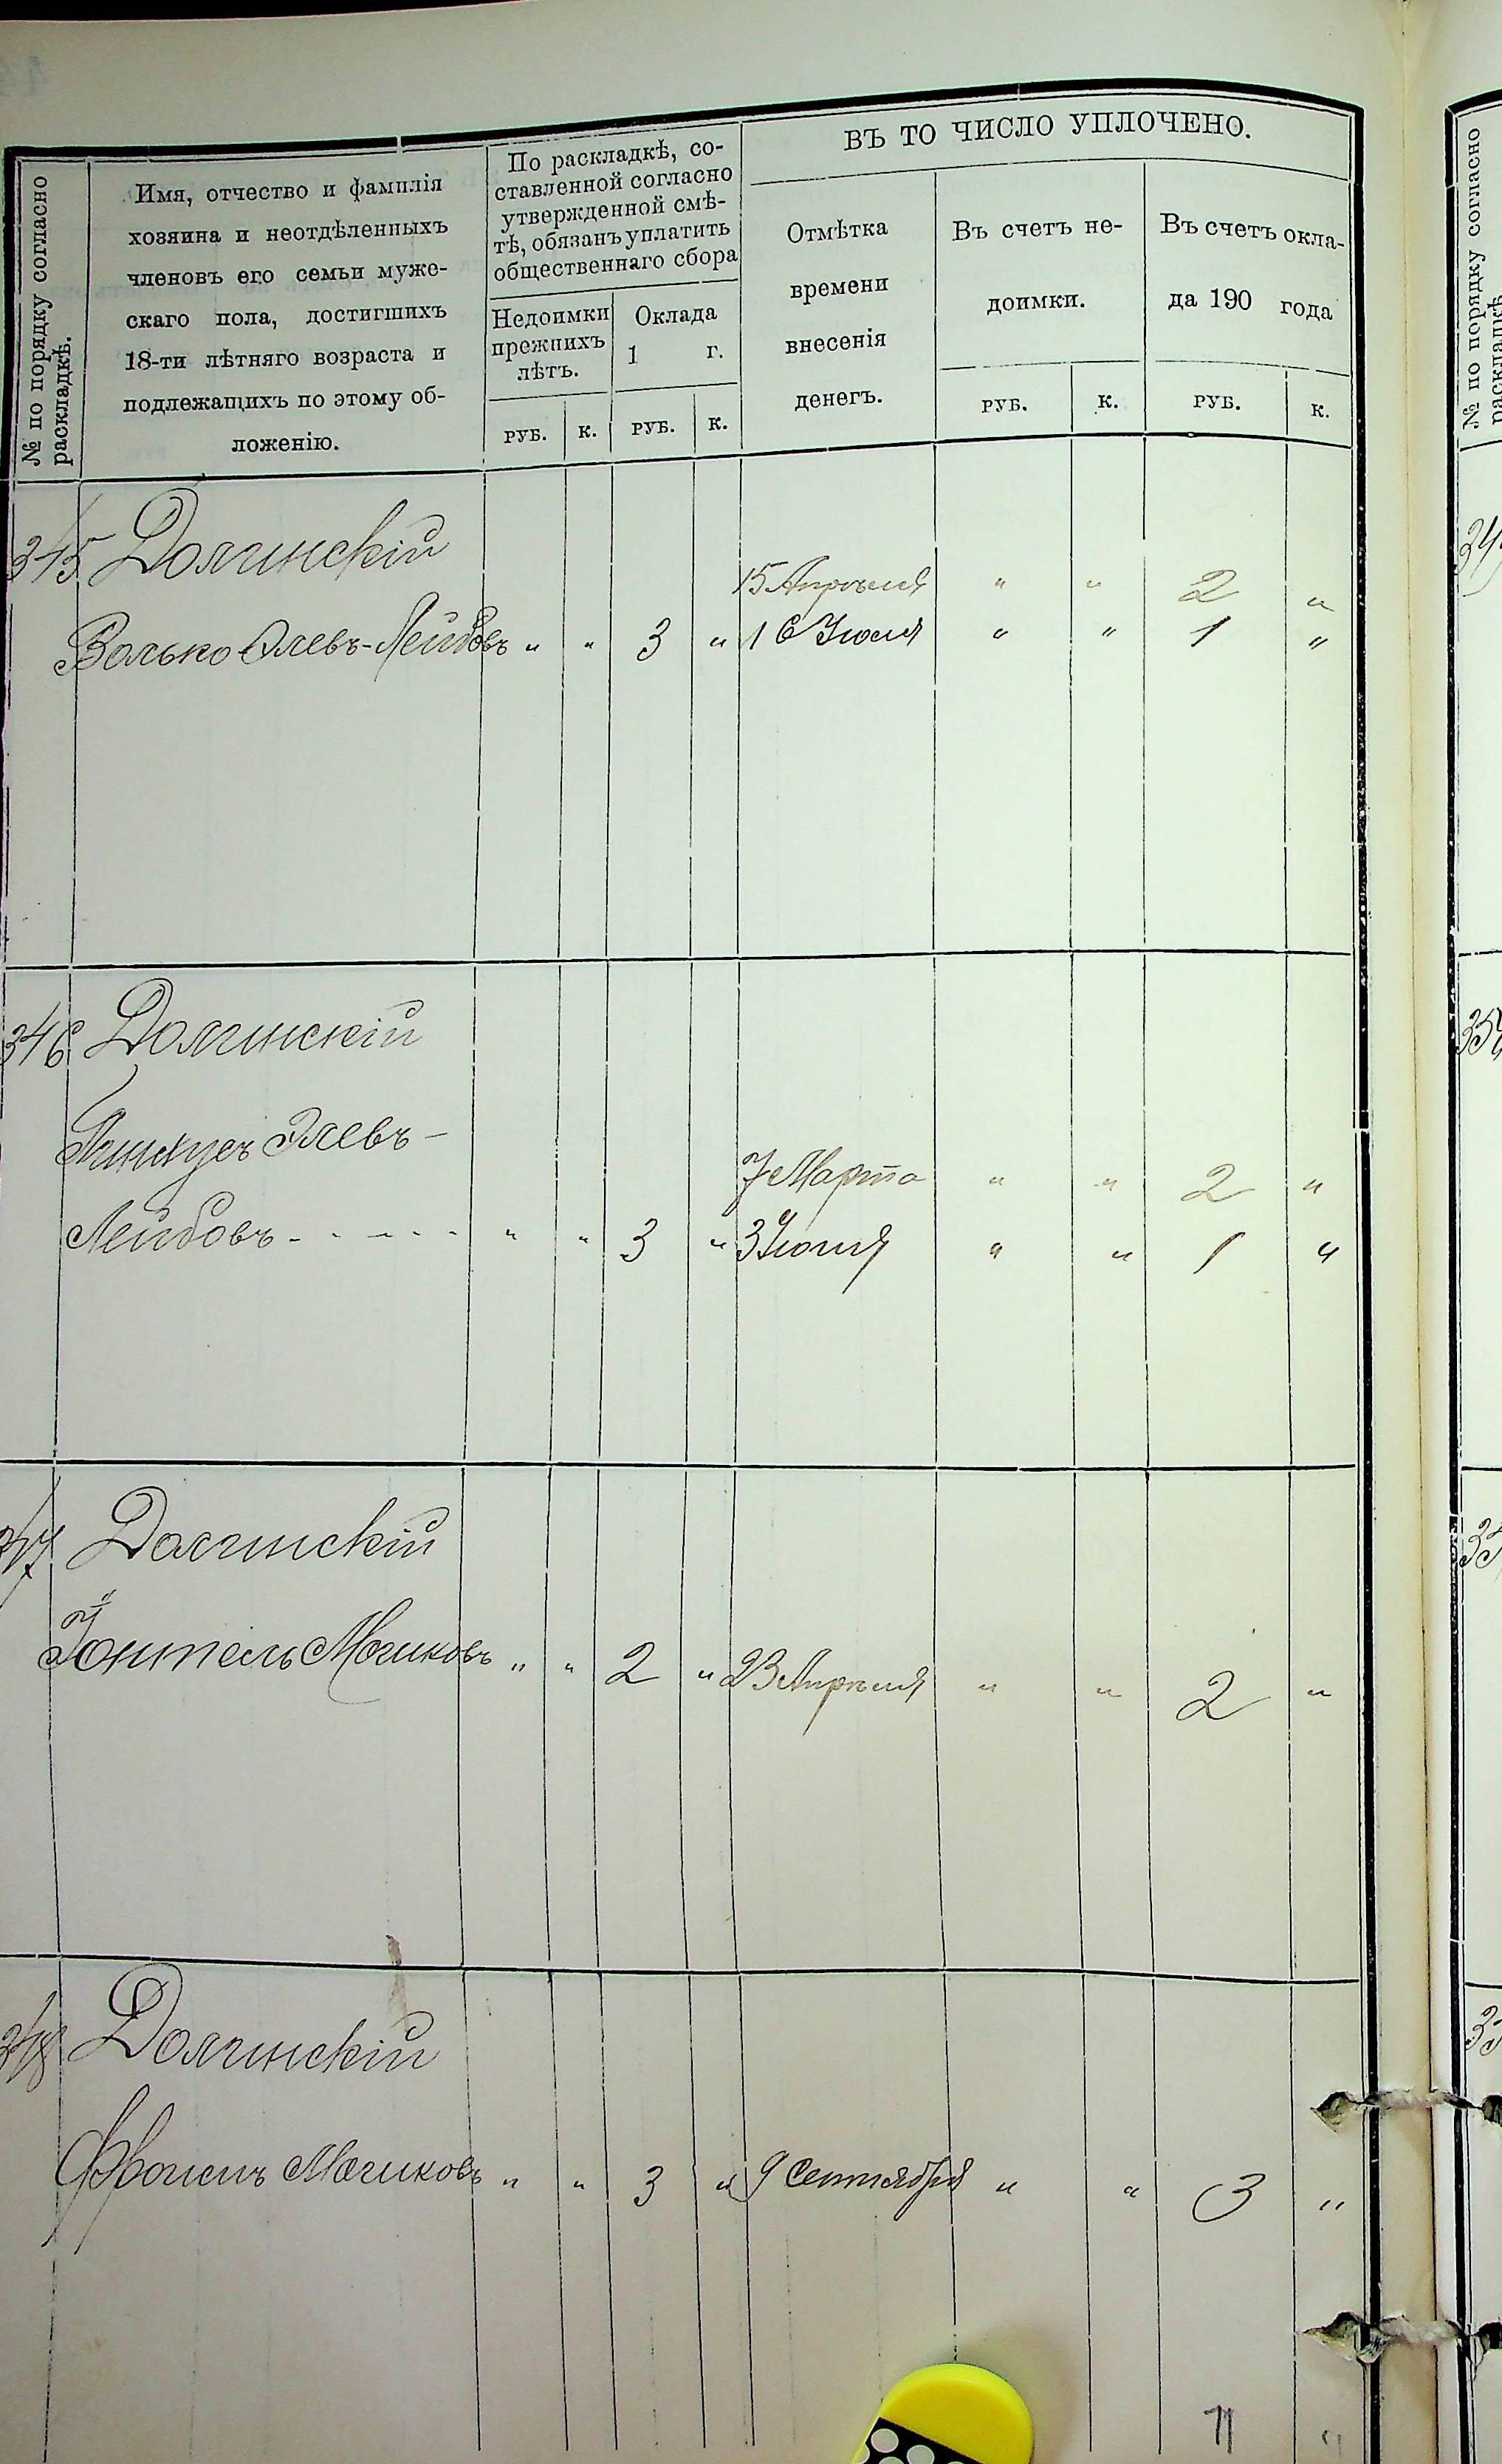 № по порядку согласно раскладкѣ.
Имя, отчество и фамилія
хозяина и неотдѣленныхъ
членовъ его семьи муже-
скаго пола, достигшихъ
18-ти лѣтняго возраста и
подлежащихъ по этому об-
ложенію.
По раскладкѣ, со-
ставленной согласно
утвержденной смѣ-
тѣ, обязанъ уплатить
общественнаго сбора
Недоимки
прежнихъ
лѣтъ.
Оклада
1 г.
РУБ. К. РУБ. К.
ВЪ ТО ЧИСЛО УПЛОЧЕНО.
Отмѣтка
времени
внесенія
денегъ.
Въ счетъ не-
доимки.
РУБ. К.
Въ счетъ окла-
да 190 года
РУБ. К.
345 Долчинскій
15 Апрѣля " " 2 "
Волько Элевъ-Лейбовъ " " 3 " 16 Іюля " " 1 "
346 Долчинскій
Пинхусъ Элевъ-
7 Марта " " 2 "
Лейбовъ - - - - - " " 3 " 3 Іюля " " 1 "
347 Долчинскій
Іонтель Мочиковъ " " 2 " 23 Апрѣля " " 2 "
348 Долчинскій
Фроимъ Мочиковъ " " 3 " 9 Сентября " " 3 "
11 "
№ по порядку согласно
раскладкѣ